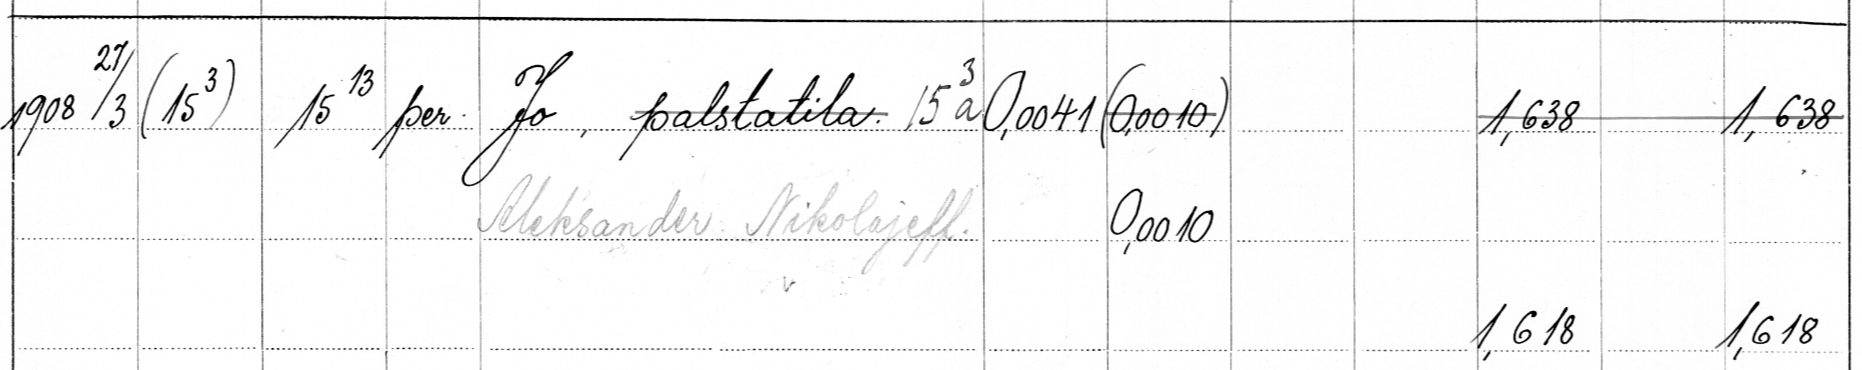 1908 27/3 (15³) 15¹³ per. Jo, palstatila. 15³a 0,0041 (0,0010) 1,638 1,638
Aleksander Nikolajeff. 0,0010
1,618 1,618